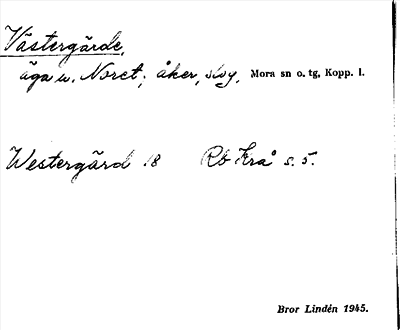 Västergärde,
äga u. Noret; åker, slog. Mora sn o. tg, Kopp. l.
Westergärd 18 Rb Krå s. 5.
Bror Lindén 1945.